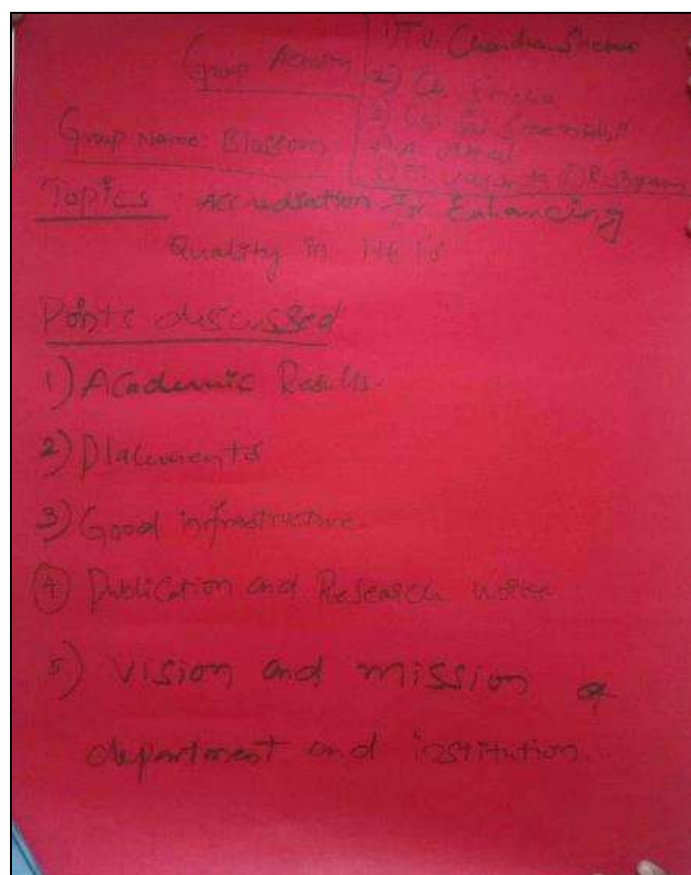 Group Activity
1) T.V. Chandra Shekar
2) Ch.
3)
4)
5)
Group Name: Blossom
Topics : Accrediation for Enhancing
Quality in HEIs
Points discussed
1) Academic Results.
2) Placements
3) Good infrastructure.
4) Publication and Research work
5) Vision and mission of
department and institution.